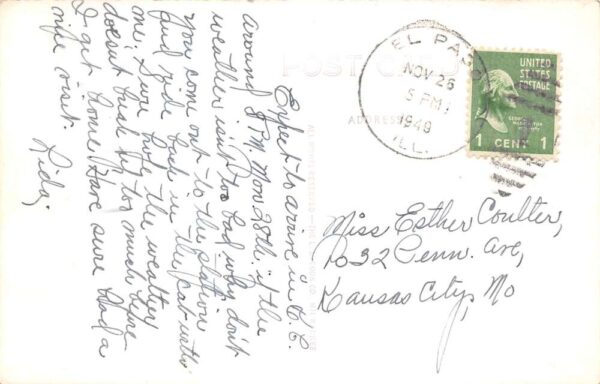 Expect to arrive in K.C.
around 8 P.M. Mon 28th, if the
weather isn't too bad why don't
you come out to the station
and ride back in the cab with
me. Sure hope the weather
doesn't break up too much before
I get home. Have sure had a
nice visit.
Lida,
POST CARD
ADDRESS
EL PASO
NOV 26
5 PM
1949
ILL.
UNITED
STATES
POSTAGE
1 CENT 1
Miss Esther Coulter,
1032 Penn. Ave,
Kansas City, Mo